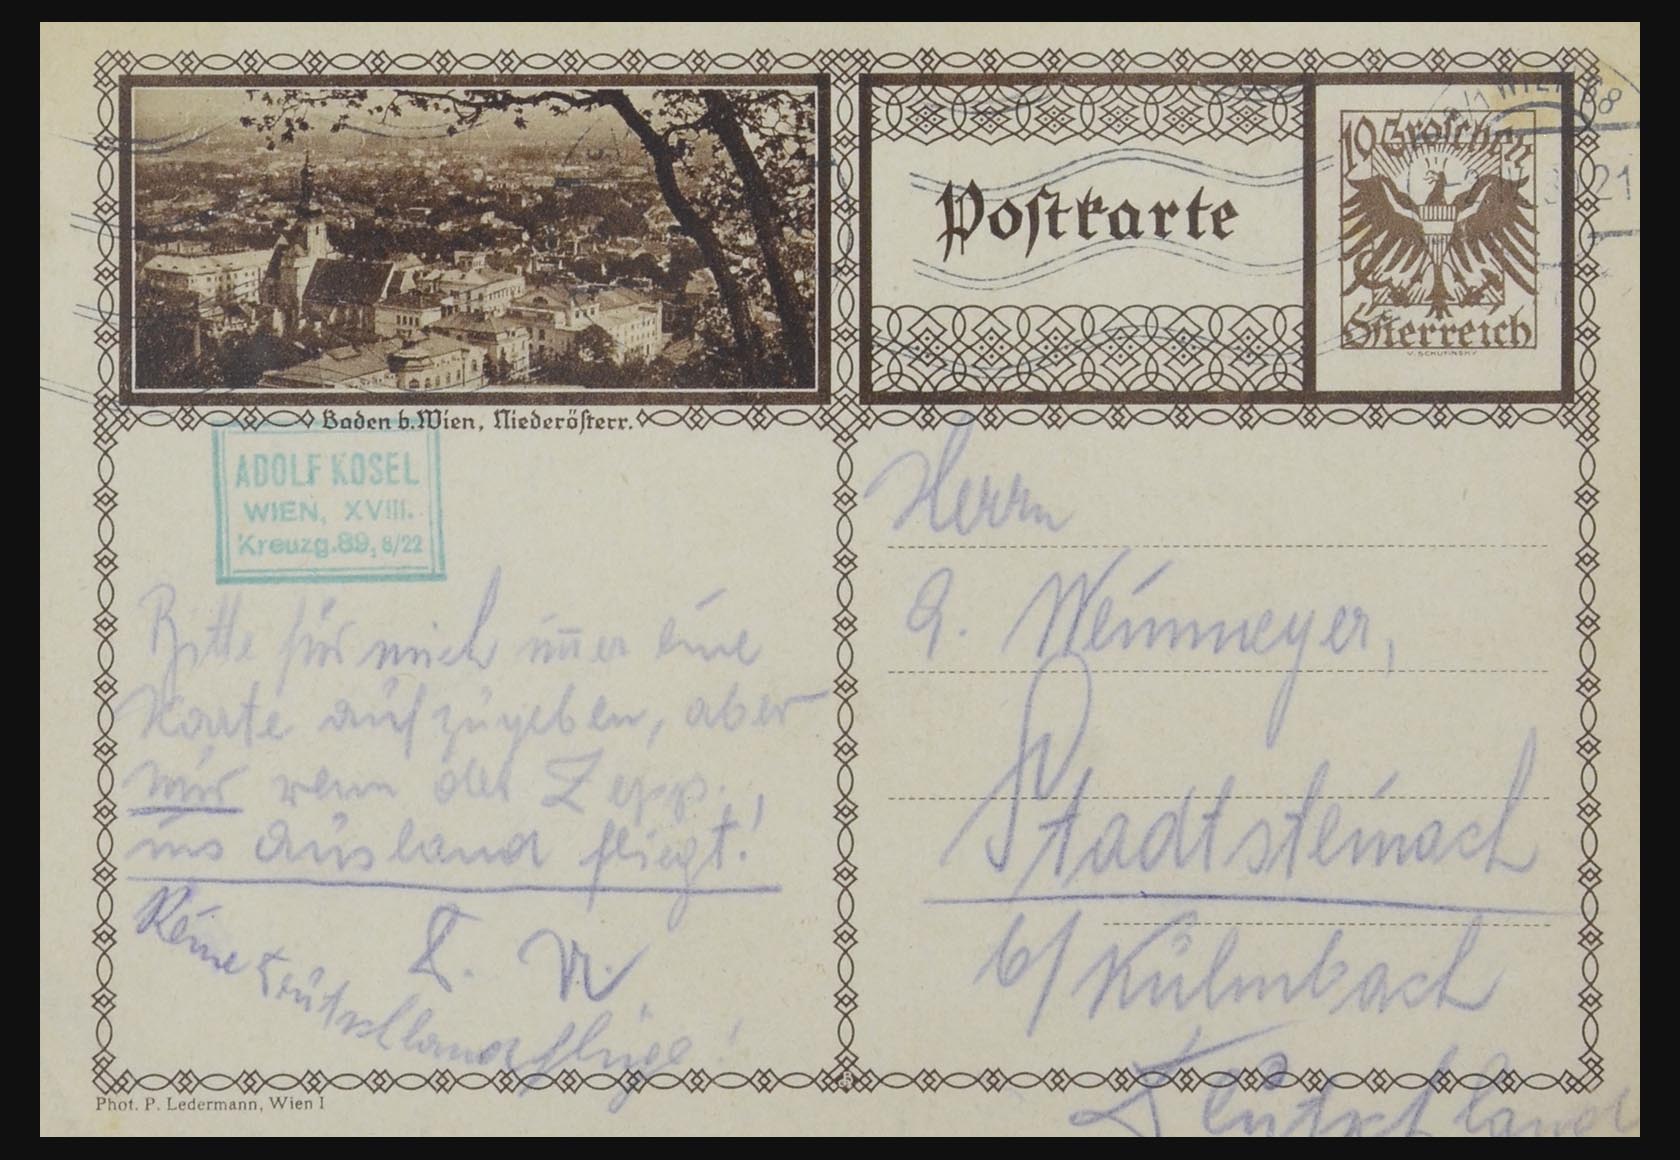 Postkarte
10 Groschen
Österreich
V. SCHUFINSKY
WIEN 68
21
Baden b. Wien, Niederösterr.
ADOLF KOSEL
WIEN, XVIII.
Kreuzg. 89, 8/22
Bitte für mich im̄er eine
Karte aufzugeben, aber
nur wenn der Zepp.
ins Ausland fliegt!
Keine Deutschlandflüge!
Herrn
Weinmeyer,
Stadtsteinach
b/ Kulmbach
Deutschland
5
Phot. P. Ledermann, Wien I